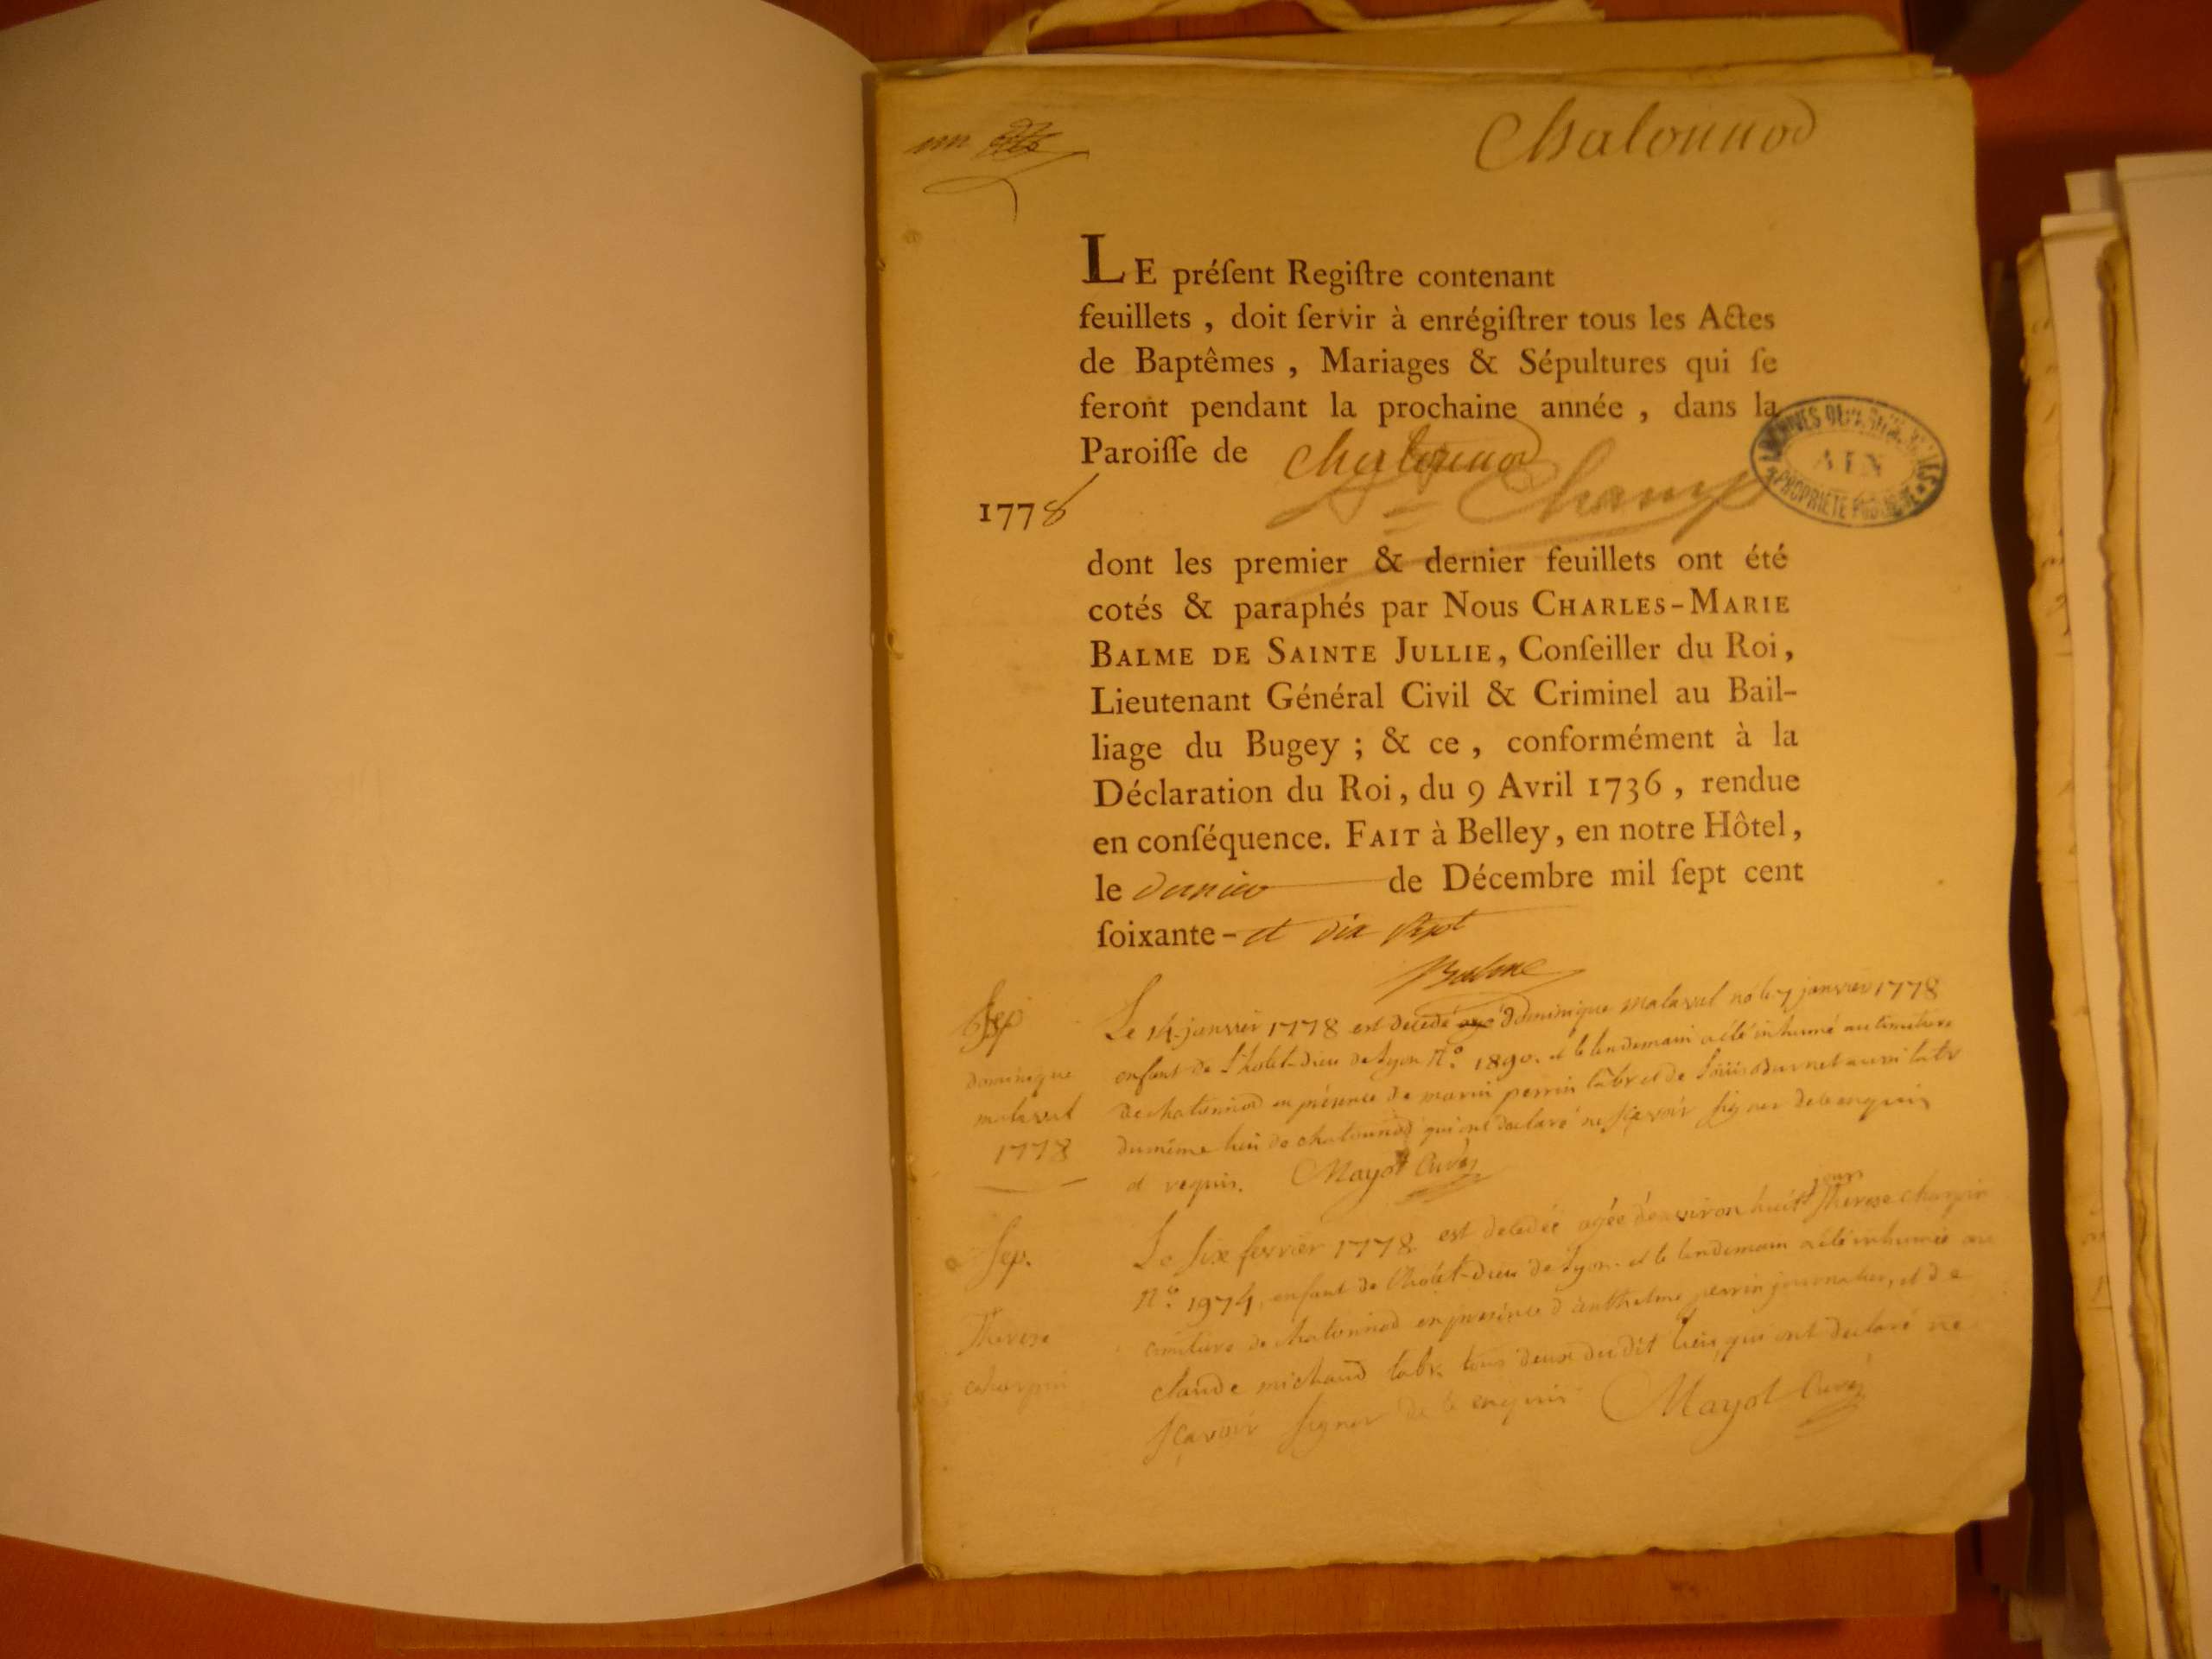 Chatonnod
LE préſent Regiſtre contenant
feuillets, doit ſervir à enrégiſtrer tous les Actes
de Baptêmes, Mariages & Sépultures qui ſe
feront pendant la prochaine année, dans la
Paroiſſe de Chatonnod
Champ
ARCHIVES DÉPARTEMENTALES
AIN
PROPRIÉTÉ PUBLIQUE
1778
dont les premier & dernier feuillets ont été
cotés & paraphés par Nous CHARLES-MARIE
BALME DE SAINTE JULLIE, Conſeiller du Roi,
Lieutenant Général Civil & Criminel au Bail-
liage du Bugey; & ce, conformément à la
Déclaration du Roi, du 9 Avril 1736, rendue
en conſéquence. FAIT à Belley, en notre Hôtel,
le dernier de Décembre mil ſept cent
ſoixante- et dix sept
Balme
Sep
dominique
malaval
1778
Le 14 janvier 1778 est decedé dominique malaval né le 7 janvier 1778
enfant de l'hotel-dieu de Lyon N.º 1890. et le lendemain a été inhumé au cimetiere
de chatonnod en présence de marin perrin labr et de Louis Burnet aussi labr
du même lieu de chatonnod qui ont declaré ne sçavoir signer de ce enquis
et requis. Mayot Curé
Sep.
Therese
charpin
Le six fevrier 1778 est decedée agée d'environ huit jours Therese charpin
N.º 1974, enfant de l'hotel-dieu de Lyon. et le lendemain a été inhumée au
cimitiere de chatonnod en presence d'anthelme perrin journalier, et de
claude michaud labr. tous deux du dit lieu, qui ont declaré ne
sçavoir signer de ce enquis Mayot Curé